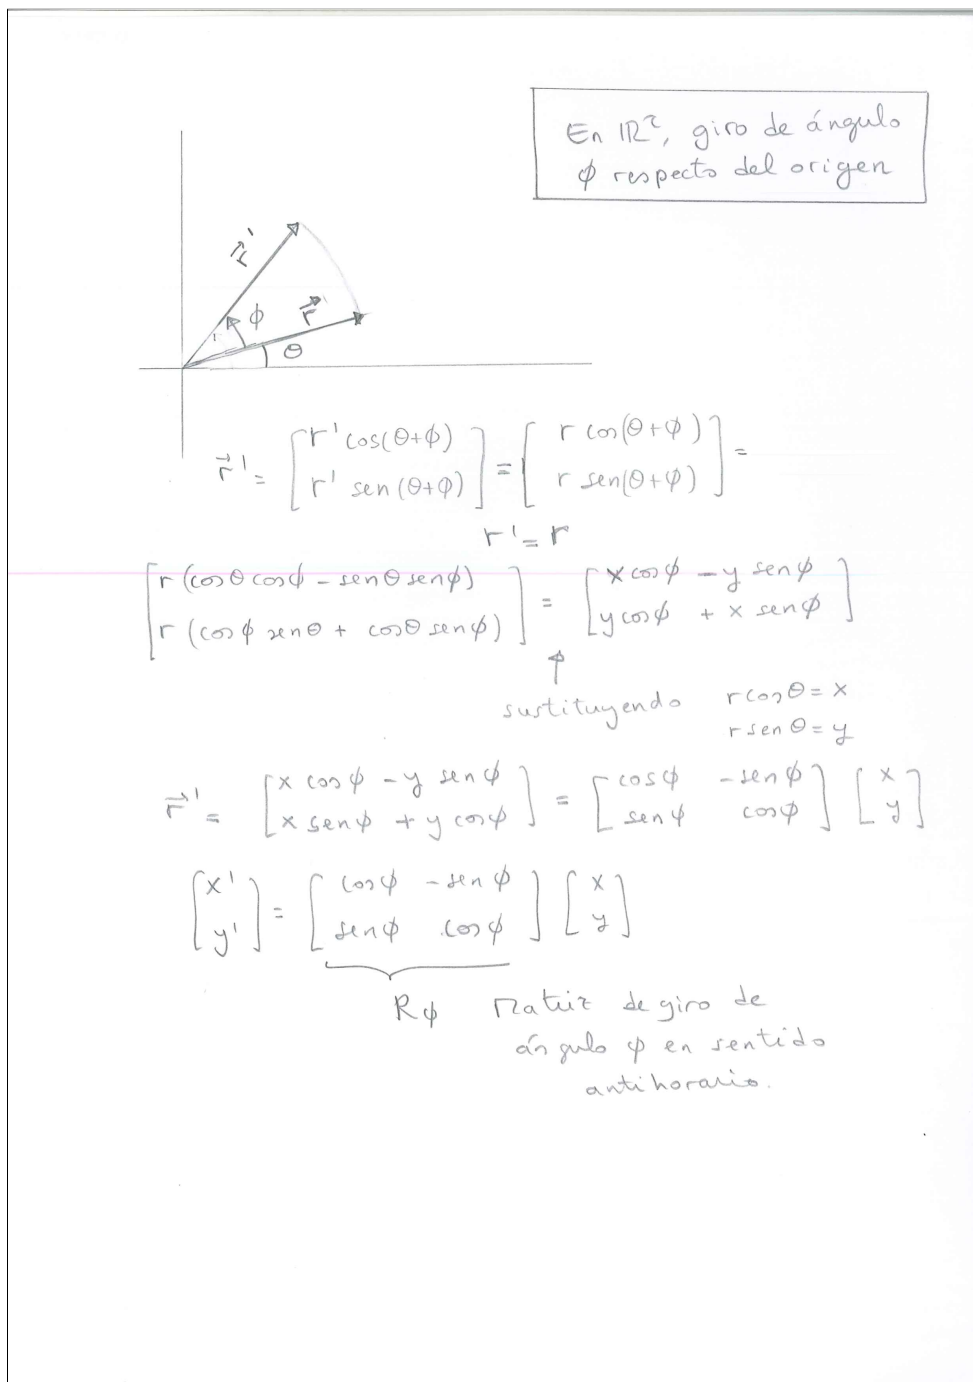 En ℝ², giro de ángulo
φ respecto del origen
r⃗'
φ
r⃗
θ
r⃗' = [r' cos(θ+φ) ; r' sen(θ+φ)] = [r cos(θ+φ) ; r sen(θ+φ)] =
r' = r
[r (cosθ cosφ - senθ senφ) ; r (cosφ senθ + cosθ senφ)] = [x cosφ - y senφ ; y cosφ + x senφ]
↑
sustituyendo r cosθ = x
r senθ = y
r⃗' = [x cosφ - y senφ ; x senφ + y cosφ] = [cosφ -senφ ; senφ cosφ] [x ; y]
[x' ; y'] = [cosφ -senφ ; senφ cosφ] [x ; y]
Rφ Matriz de giro de
ángulo φ en sentido
antihorario.